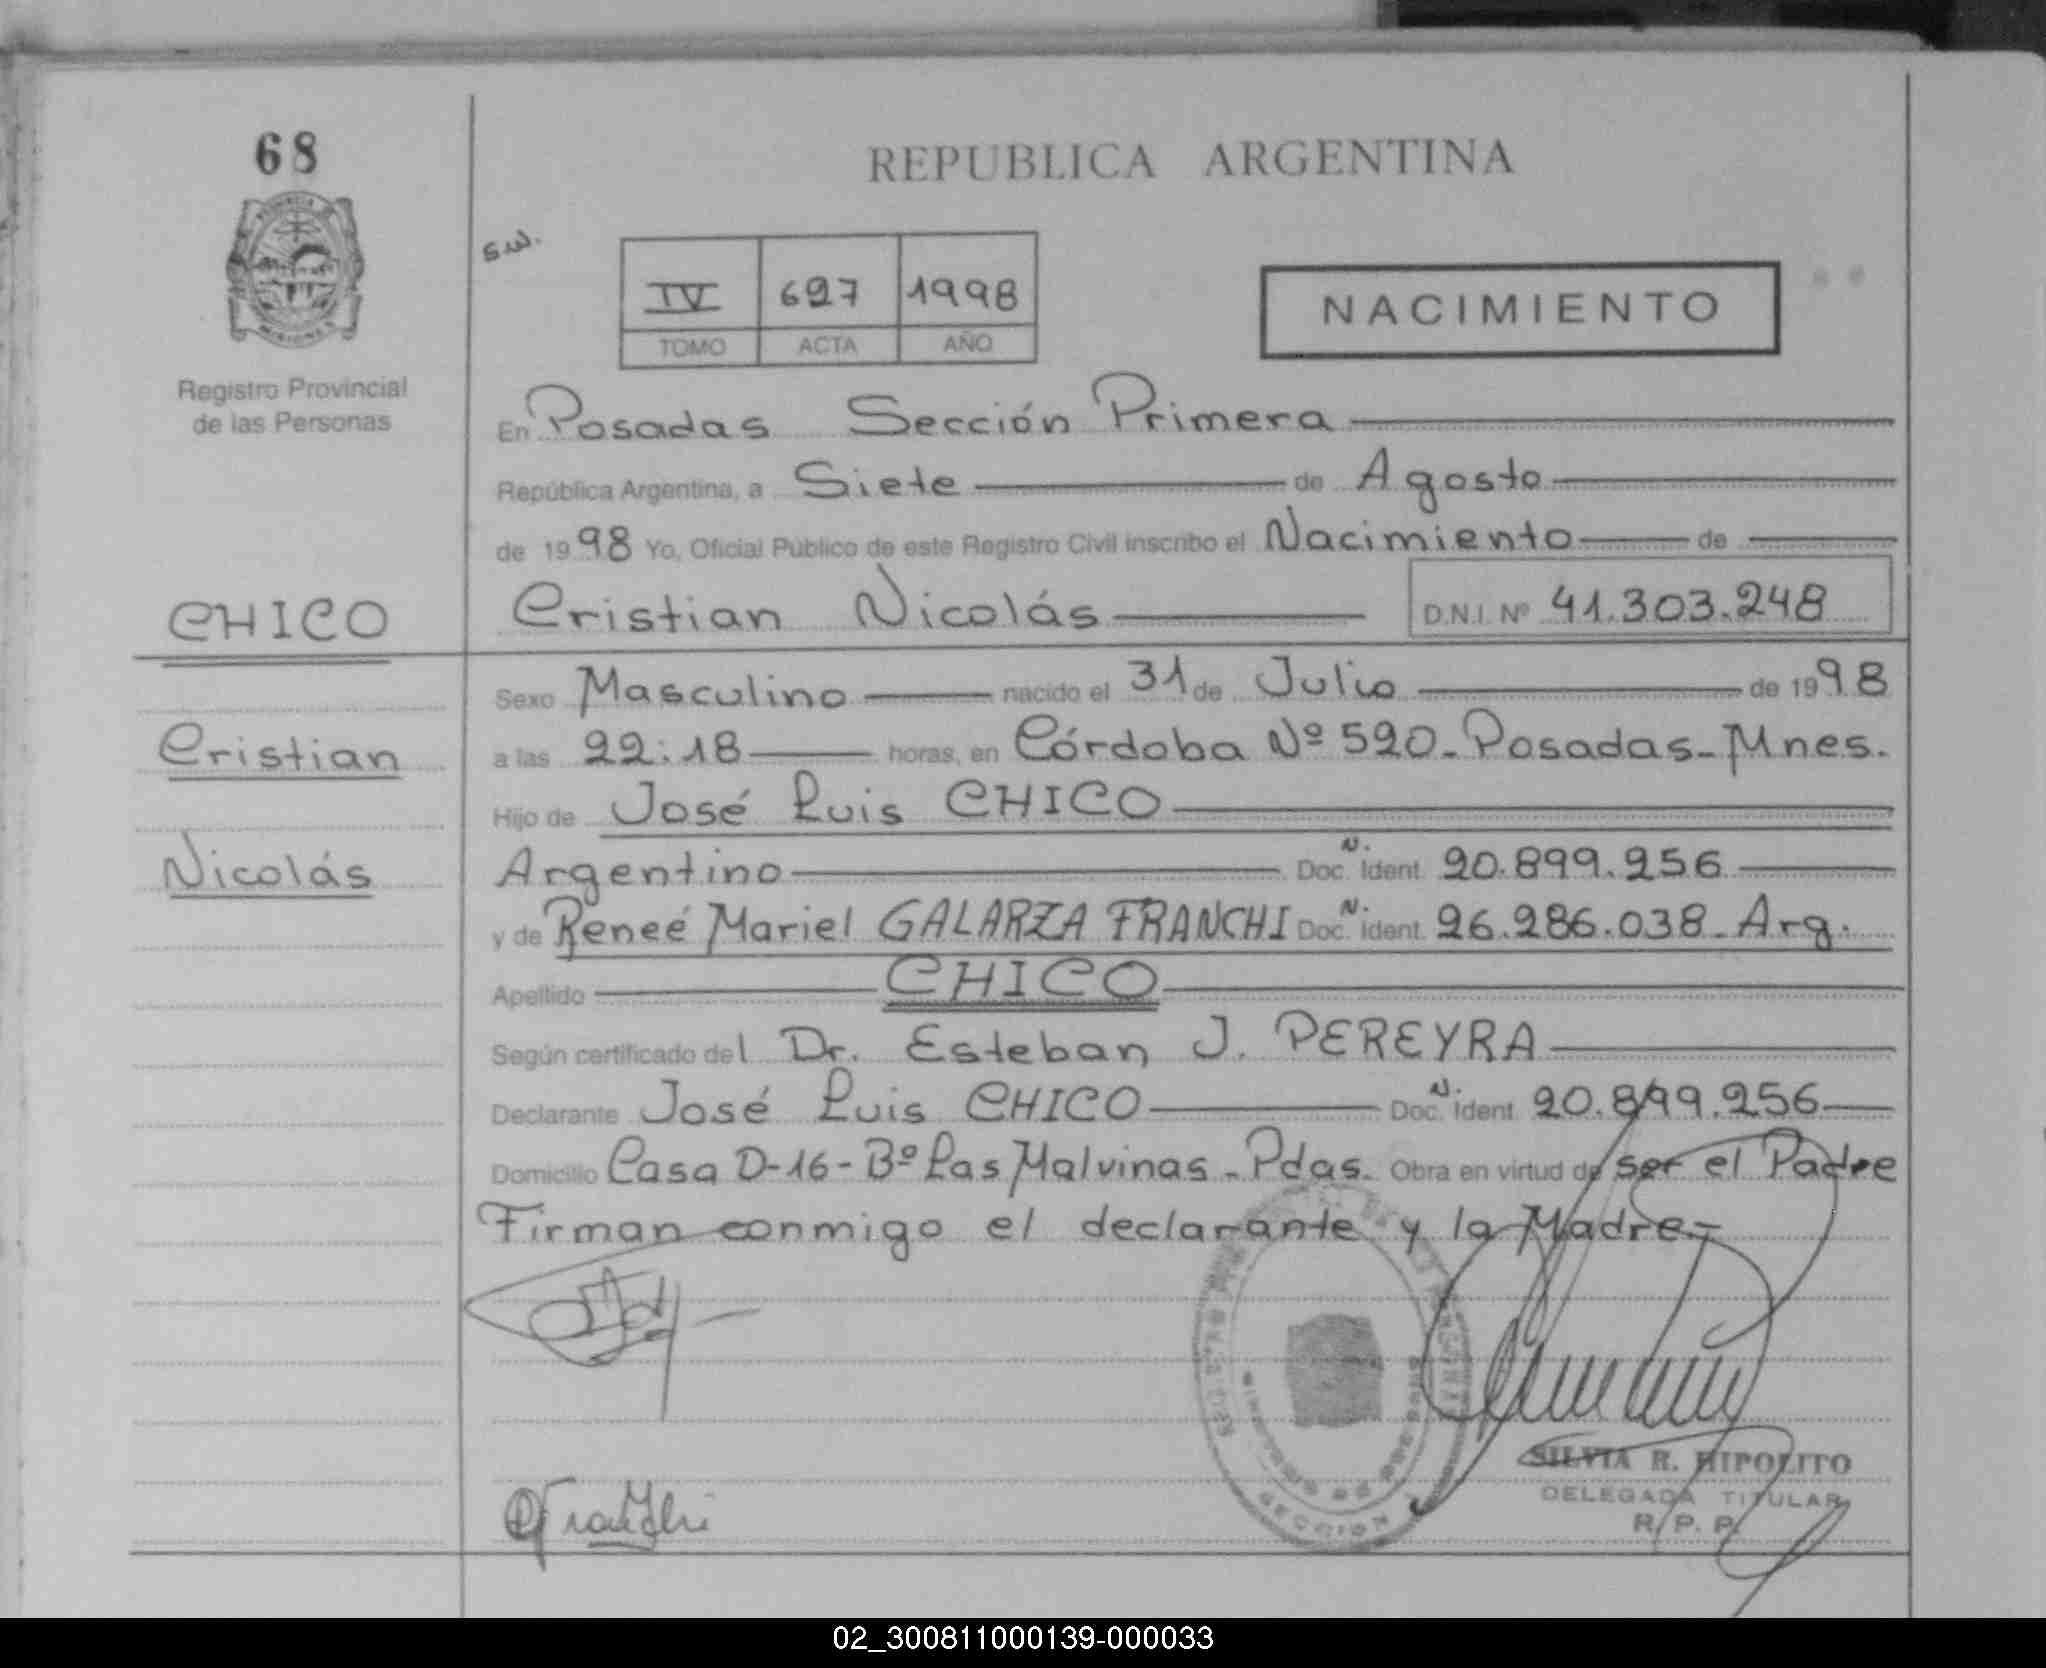 68
REPUBLICA ARGENTINA
s.w.
IV 627 1998
TOMO ACTA AÑO
NACIMIENTO
Registro Provincial
de las Personas
En Posadas Sección Primera
República Argentina, a Siete de Agosto
de 1998 Yo, Oficial Público de este Registro Civil inscribo el Nacimiento de
CHICO
Cristian Nicolás D.N.I. Nº 41.303.248
Sexo Masculino nacido el 31 de Julio de 1998
Cristian
a las 22:18 horas, en Córdoba Nº 520_ Posadas_ Mnes.
Hijo de José Luis CHICO
Nicolás
Argentino Doc.N. Ident. 20.899.256
y de Reneé Mariel GALARZA FRANCHI Doc.N. ident. 26.286.038_ Arg.
Apellido CHICO
Según certificado del Dr. Esteban J. PEREYRA
Declarante José Luis CHICO Doc.N. ident. 20.899.256
Domicilio Casa D-16- Bº Las Malvinas_ Pdas. Obra en virtud de ser el Padre
Firman conmigo el declarante y la Madre_
SILVIA R. HIPOLITO
DELEGADA TITULAR
R. P. P.
SECCION
02_300811000139-000033